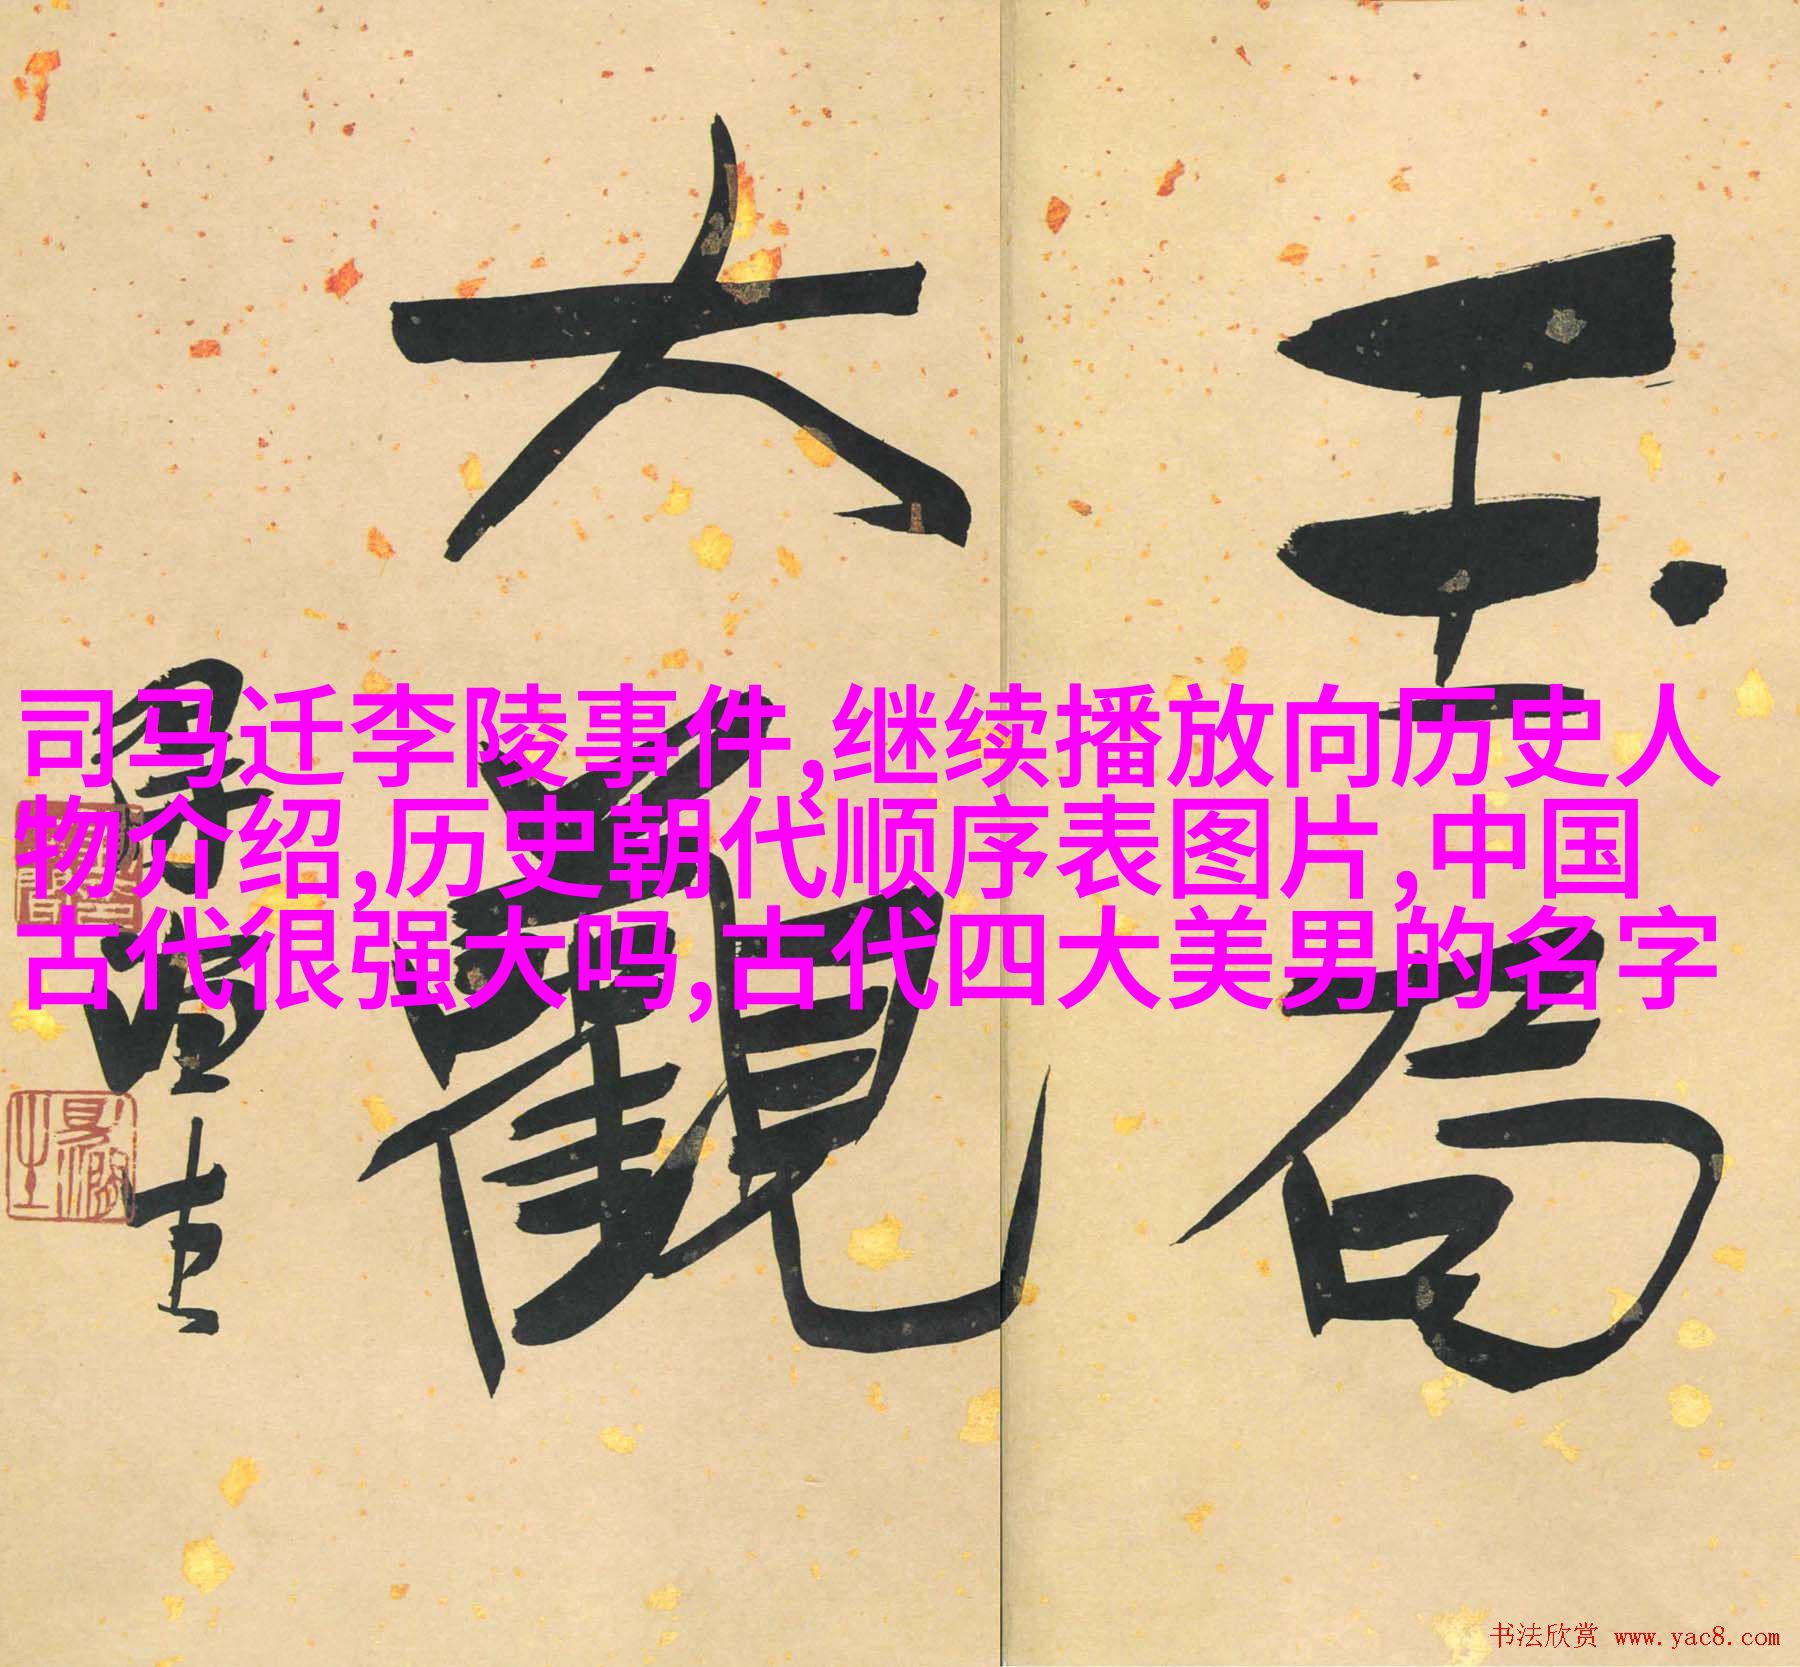 司马迁李陵事件,继续播放向历史人
物介绍,历史朝代顺序表图片,中国
古代很强大吗,古代四大美男的名字
大觀
书法欣赏 www.yac8.com